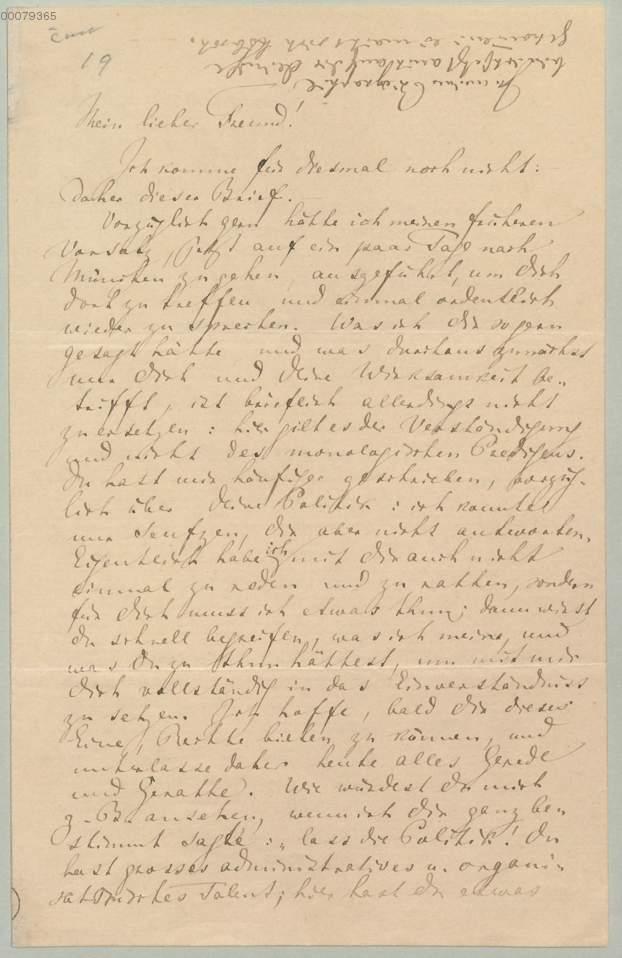 00079365
19
Mein lieber Freund!
Ich komme für diesmal noch nicht:
Daher dieser Brief. —
Vorzüglich gern hätte ich meinen früheren
Vorsatz, jetzt auf ein paar Tage nach
München zu gehen, ausgeführt, um Dich
dort zu treffen und einmal ordentlich
wieder zu sprechen. Was ich Dir so gern
gesagt hätte und was durchaus zunächst
nur Dich und Deine Wirksamkeit be-
trifft, ist brieflich allerdings nicht
zu ersetzen: hier gilt es der Verständigung
und nicht des monologischen Predigens.
Du hast mir häufiger geschrieben, vorzüg-
lich über Deine Politik: ich konnte
nur seufzen, Dir aber nicht antworten.
Eigentlich habe ich mit Dir auch nicht
einmal zu reden und zu rathen, sondern
für Dich muss ich etwas thun; dann wirst
du schnell begreifen, was ich meine, und
was Du zu thun hättest, um mit mir
Dich vollständig in das Einverständniss
zu setzen. Ich hoffe, bald Dir dieses
Eine, Rechte bieten zu können, und
unterlasse daher heute alles Gerede
und Gerathe. Wie würdest du mich
z. B. ansehen, wenn ich Dir ganz be
stimmt sagte: „lass die Politik! Du
hast grosses administratives u. organi-
satorisches Talent; hier hast du etwas